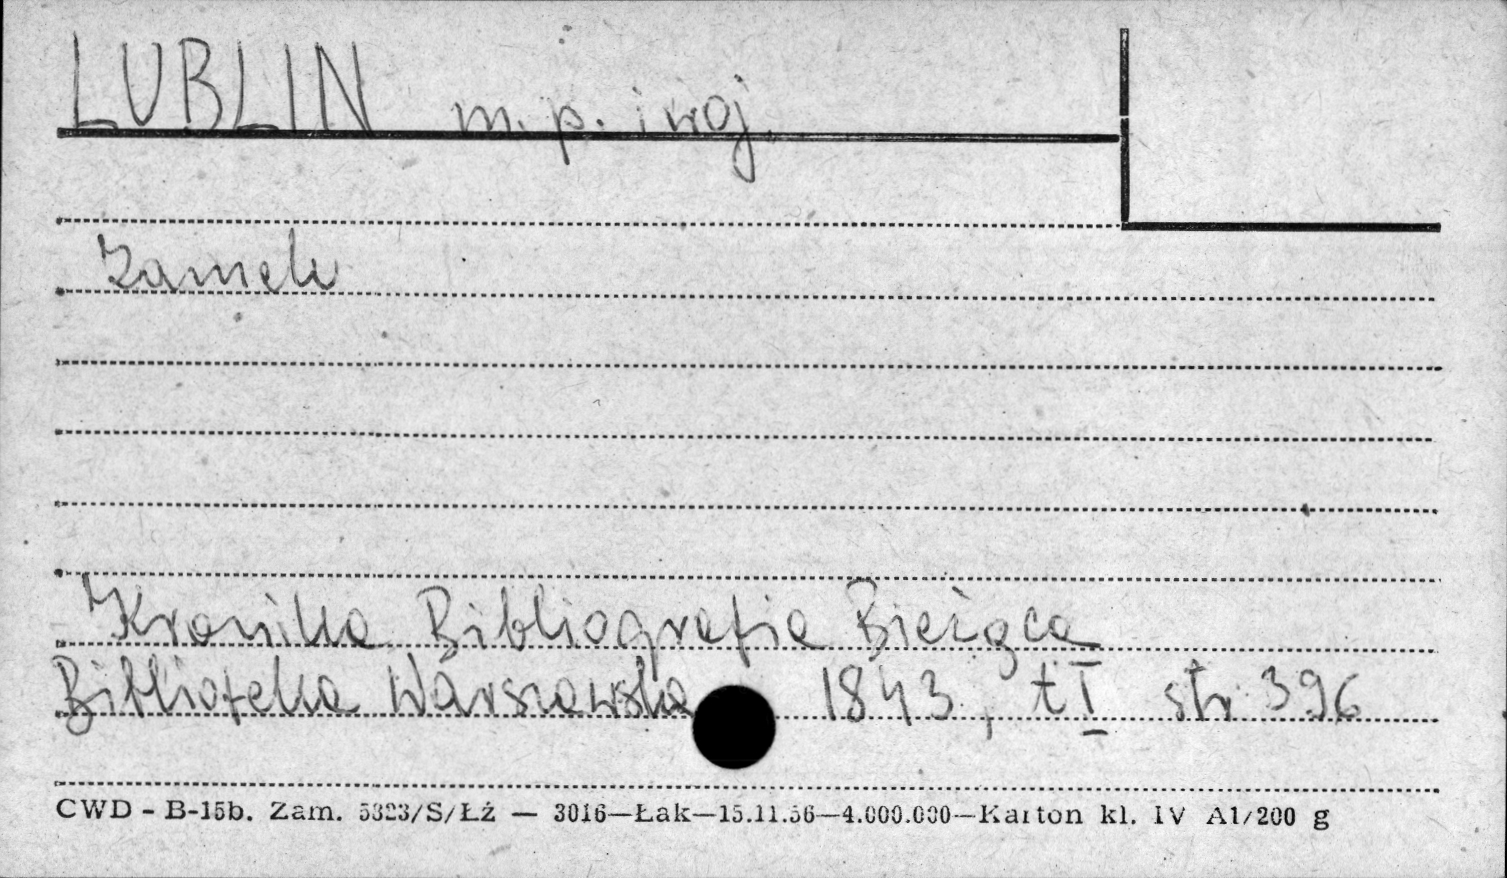 LUBLIN m. p. i woj.
Zamek
Kronika Bibliografia Bieżąca
Biblioteka Warszawska 1843, t I str 396
CWD - B-15b. Zam. 5323/S/Łź — 3016—Łak—15.11.56—4.000.000—Karton kl. IV A1/200 g